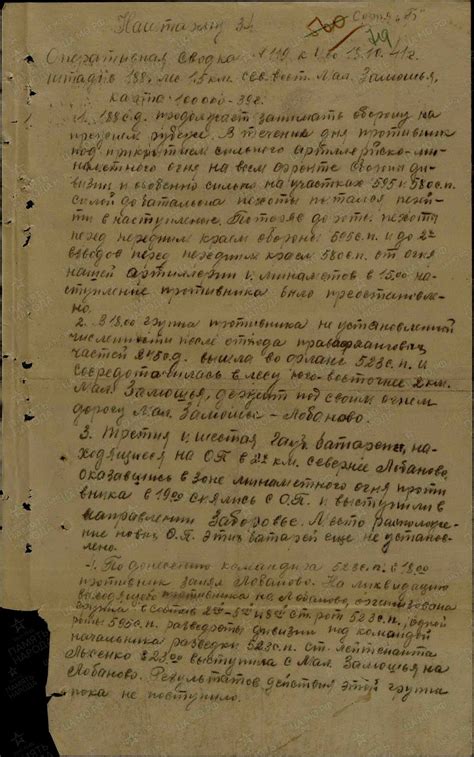 Серия „Б"
Начштарму 34
79
Оперативная сводка № 119 к 4.00 13.10.41 г.
штадив 188, лес 1,5 км. сев. вост. Мал. Замошья,
карта 100000-39г.
1. 188 с.д. продолжает занимать оборону на
прежнем рубеже. В течении дня противник
под прикрытием сильного артиллерийско-ми-
наметного огня на всем фронте обороны ди-
визии и особенно сильно на участках 595 и 580 с.п.
силой до батальона пехоты пытался перей-
ти в наступление. Потеряв до роты пехоты
перед передним краем обороны 595 с.п. и до 2х
взводов перед передним краем 580 с.п. от огня
нашей артиллерии и минометов в 15.00 на-
ступление противника было приостановле-
но.
2. В 18.00 группа противника не установленной
численности после отхода правофланговых
частей с.д. вышла во фланг 523 с.п. и
сосредоточилась в лесу юго-восточнее 2 км.
Мал. Замошья, держит под своим огнем
дорогу Мал. Замошье - Лобаново.
3. Третья и шестая батареи, на-
ходящиеся на О.П. в 2х км. севернее Лобаново,
оказавшись в зоне минаметного огня проти
вника в 19.00 снялись с О.П. и выступили в
направлении Заборовье. Место расположе-
ние новых О.П. этих батарей еще не установ-
лено.
4. По донесению командира 523 с.п. в 18.00
противник занял Лобаново. На ликвидацию
противника на Лобаново, организована
группа в составе стр. рот 523 с.п., одной
роты 595 с.п. разведроты дивизии под командой
начальника разведки 523 с.п. ст. лейтенанта
в 23.00 выступила с Мал. Замошья на
Лобаново. Результатов действия этой группы
пока не поступило.